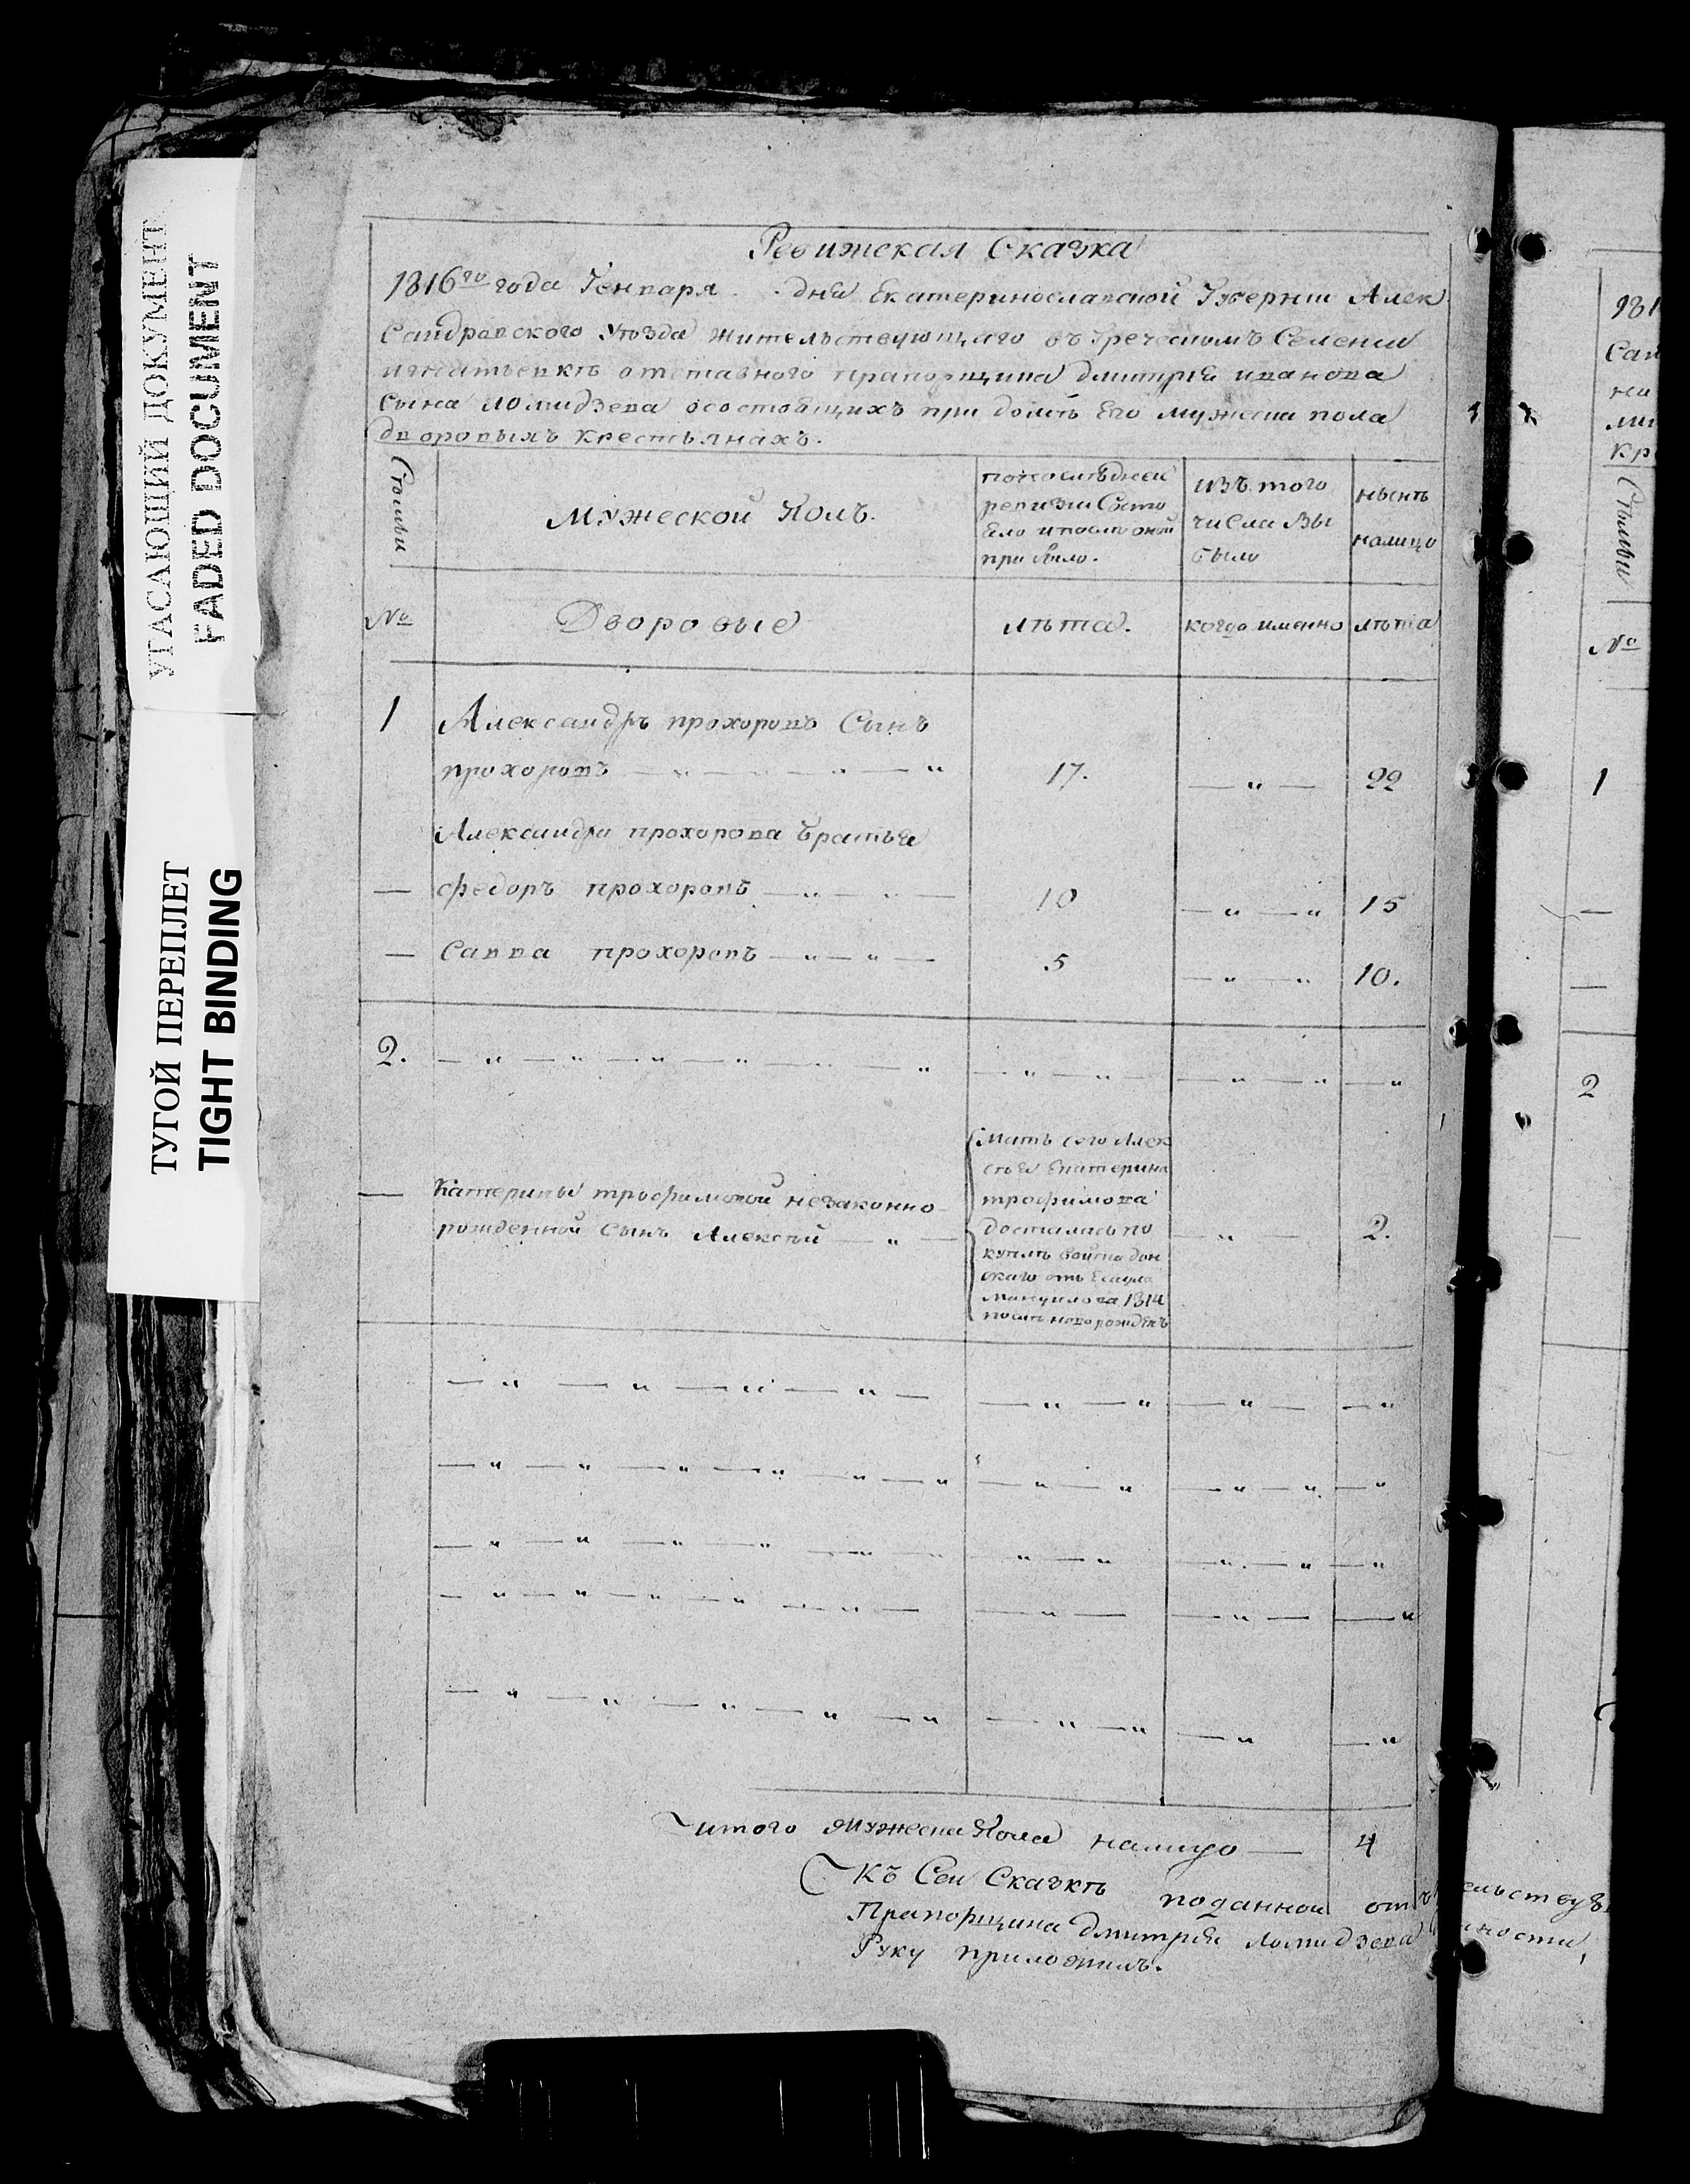 УГАСАЮЩИЙ ДОКУМЕНТ
FADED DOCUMENT
ТУГОЙ ПЕРЕПЛЕТ
TIGHT BINDING
Ревижская Сказка
1816го года Генваря дня Екатеринославской Губернии Алек
Сандравского уѣзда жительствующаго въ Греческомъ Селении
игнатьевкѣ отставного прапорщика дмитрия иванова
Сына ломидзева осостоящихъ при домѣ Его мужеска пола
дворовыхъ крестьянахъ.
Мужеской Полъ.
последней
ревизии Состо
яло и после оной
прибыло.
изъ того
числа Вы
было
нынѣ
налицо
№
Дворовые
лѣта.
когда именно
лѣта
1
Александръ прохоровъ Сынъ
прохоровъ — „ — „ — „ — „
17.
— „ —
22
Александра прохорова братья
— федоръ прохоровъ — „ — „ —
10
— „ — „
15
— Савва прохоровъ — „ — „ —
5
— „ — „
10.
2. — „ — „ — „ — „ — „ — „
— Катерины трофимовой незаконно
рожденной сынъ Алексѣй — „ —
Мать сего Алек
сѣя Екатерина
трофимова
досталась по
купкѣ войска дон
скаго отъ Есаула
Мануилова 1814
после новорожденъ
— „ —
2.
итого Мужеска Пола налицо —
4
Къ Сей Скаскѣ поданной отъ
Прапорщика дмитрия Ломидзева
Руку приложилъ.
181
Сан
на
ми
кр
№
1
2